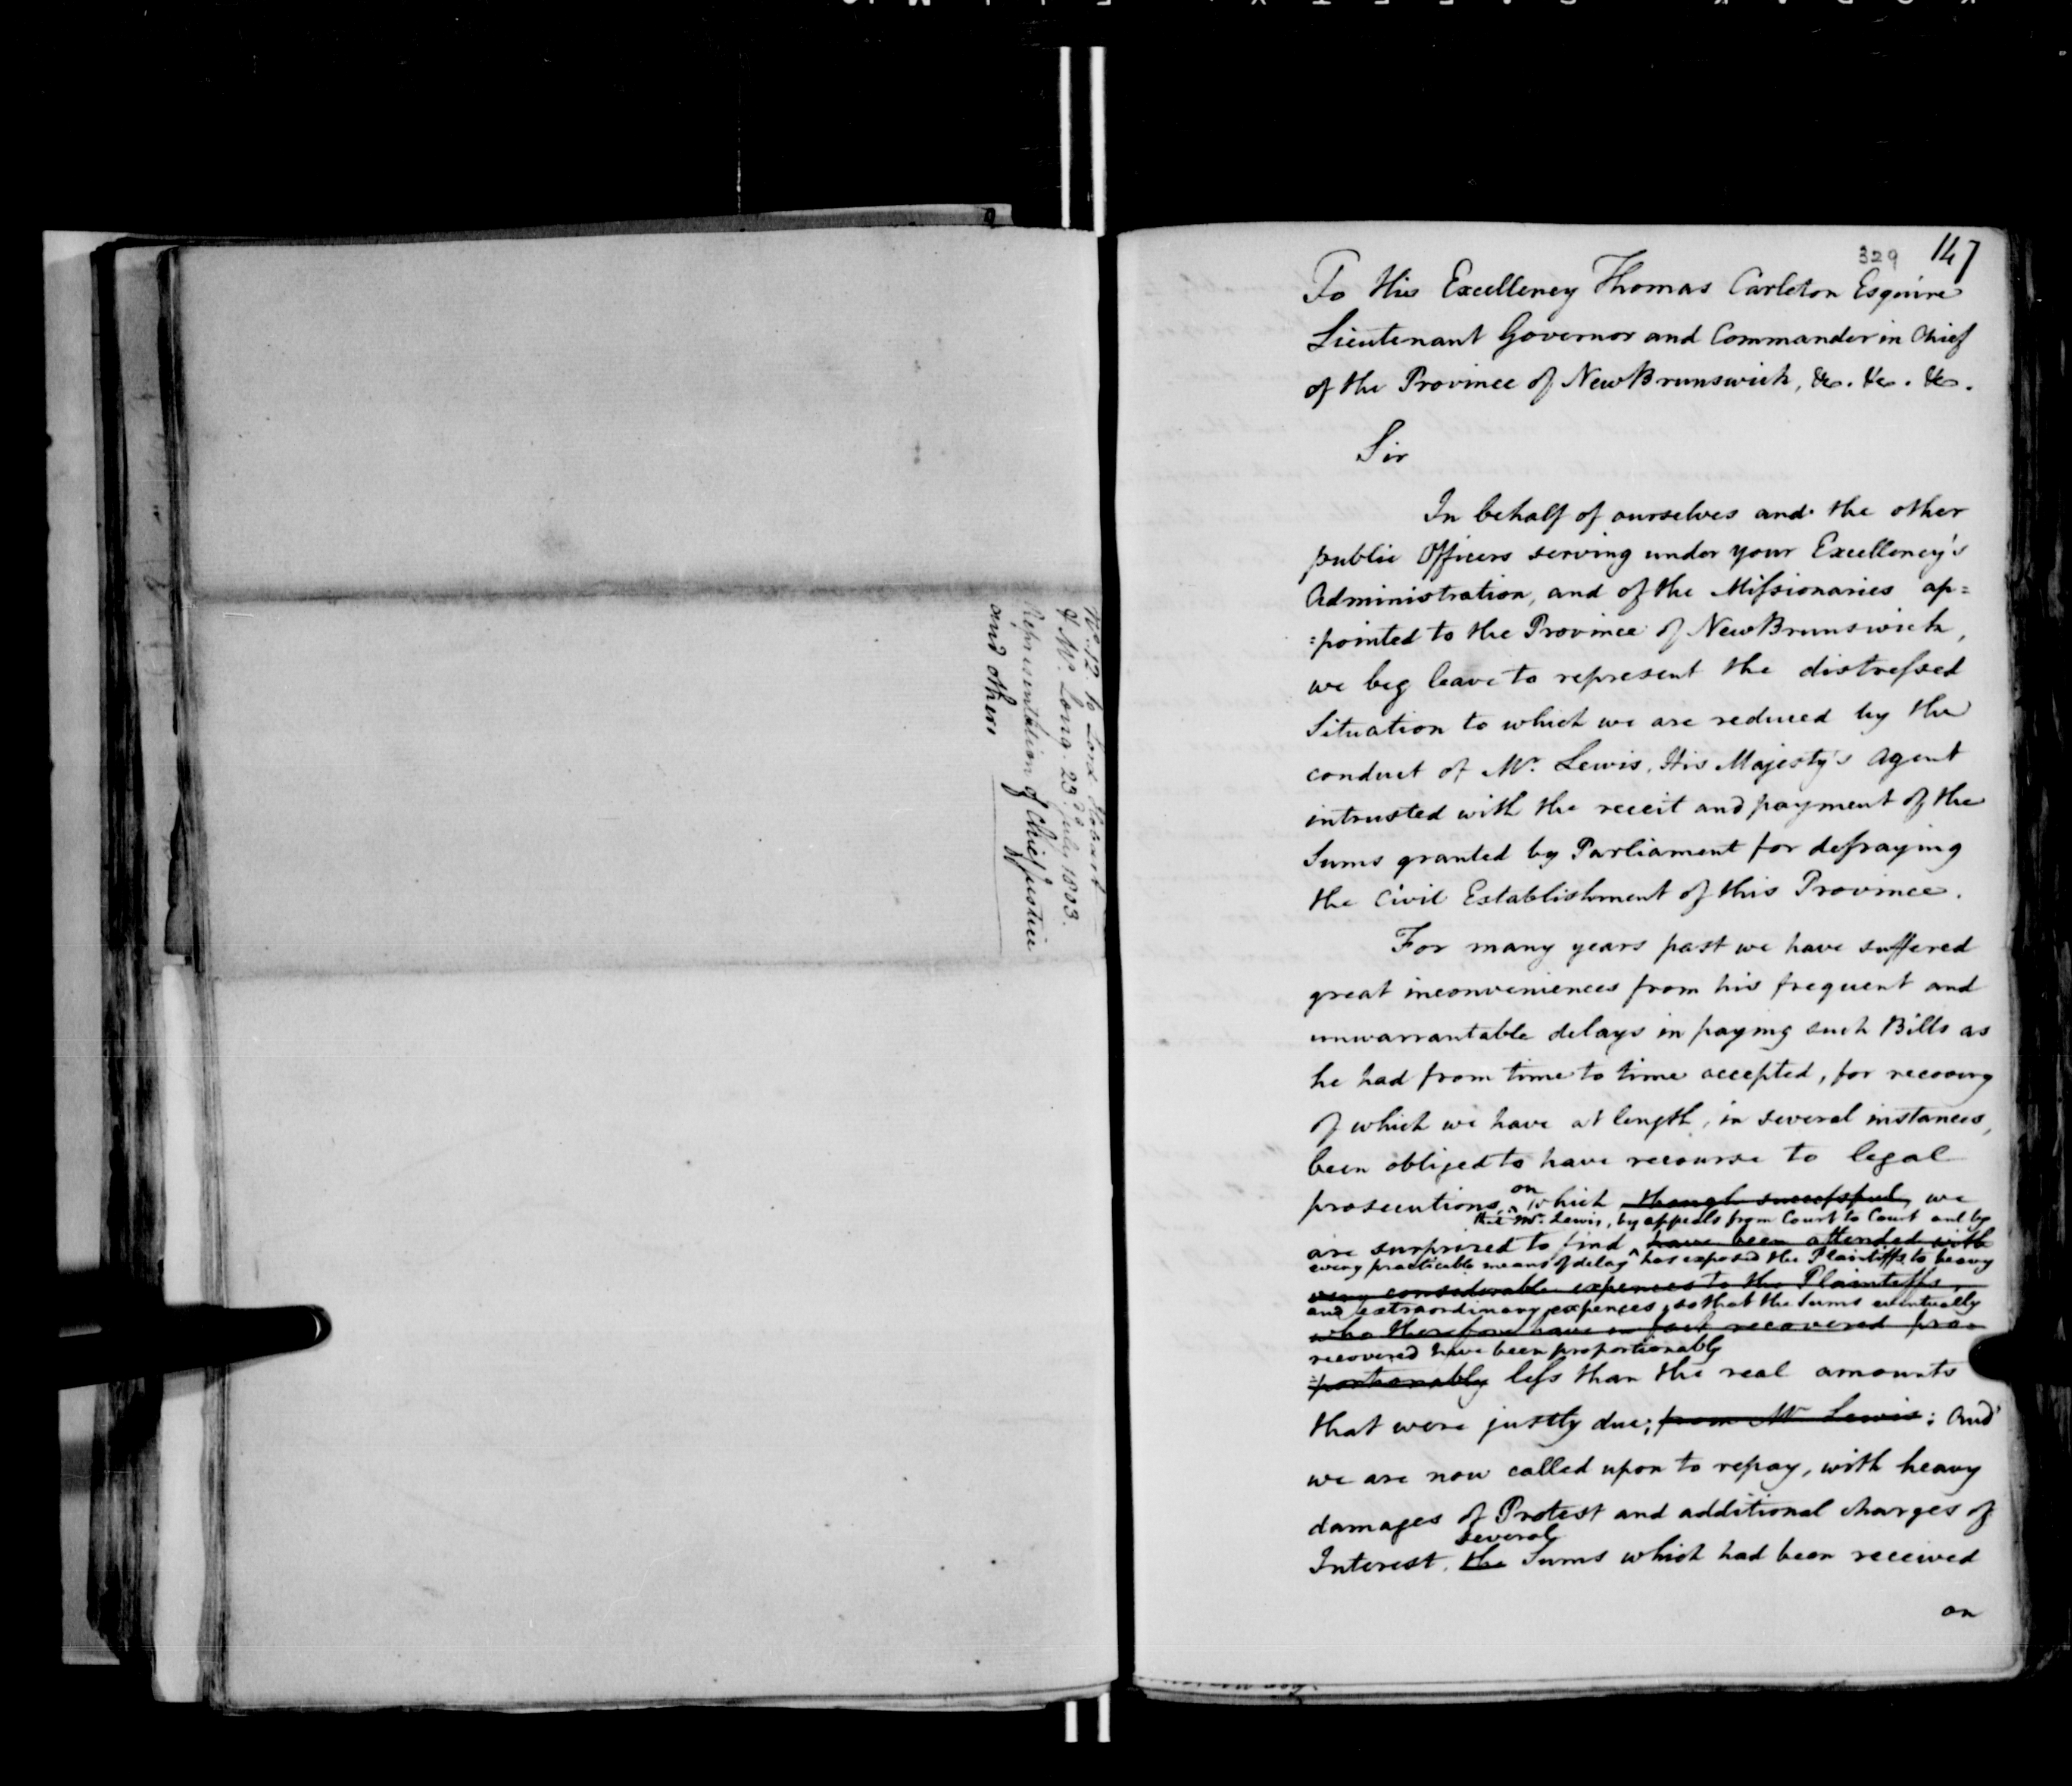 No. 12. to Lord Hobart
& Mr. Long. 23d. July 1803.
Representation of Chief Justice
and others
329 147
To His Excellency Thomas Carleton Esquire
Lieutenant Governor and Commander in Chief
of the Province of New Brunswick, &c. &c. &c.
Sir
In behalf of ourselves and the other
public Officers serving under your Excellency's
Administration, and of the Missionaries ap=
=pointed to the Province of New Brunswick,
we beg leave to represent the distressed
Situation to which we are reduced by the
conduct of Mr. Lewis, His Majesty's Agent
intrusted with the receit and payment of the
Sums granted by Parliament for defraying
the Civil Establishment of this Province.
For many years past we have suffered
great inconveniences from his frequent and
unwarrantable delays in paying such Bills as
he had from time to time accepted, for recovery
of which we have at length, in several instances,
been obliged to have recourse to legal
on
prosecutions, which though successful, we
that Mr. Lewis, by appeals from Court to Court and by
are surprized to find have been attended with
every practicable means of delay has exposed the Plaintiffs to heavy
very considerable expences to the Plaintiffs,
and extraordinary expences, so that the Sums eventually
who therefore have in fact recovered pro=
recovered have been proportionably
=portionably less than the real amounts
that were justly due; from Mr Lewis; And
we are now called upon to repay, with heavy
damages of Protest and additional charges of
several
Interest, the Sums which had been received
on